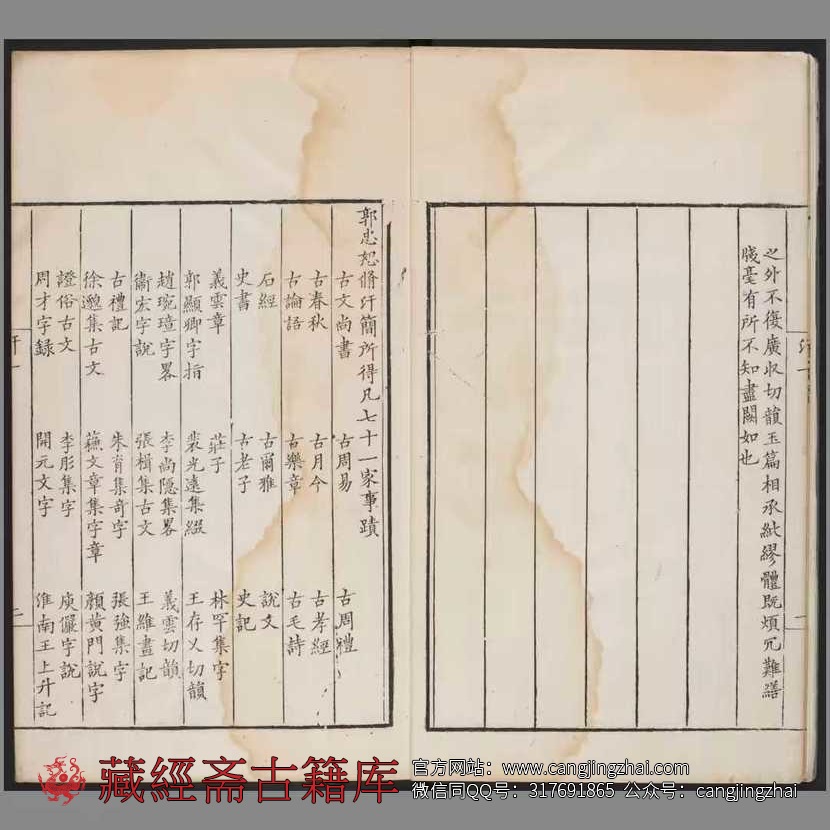 之外不復廣収切韻玉篇相承紕繆體旣煩冗難繕
牋毫有所不知盡闕如也
郭忠恕脩汗簡所得凡七十一家事蹟
古文尚書 古周易 古周禮
古春秋 古月令 古孝經
古論語 古樂章 古毛詩
石經 古爾雅 說文
史書 古老子 史記
義雲章 莊子 林罕集字
郭顯卿字指 裴光遠集綴 王存乂切韻
趙琬璋字畧 李尚隱集畧 義雲切韻
衞宏字說 張楫集古文 王維畫記
古禮記 朱育集奇字 張強集字
徐邈集古文 蘓文章集字章 顏黃門說字
證俗古文 李彤集字 庾儼字說
周才字錄 開元文字 淮南王上升記
汗一
二
藏經斋古籍库
官方网站：www.cangjingzhai.com
微信同QQ号：317691865 公众号：cangjingzhai